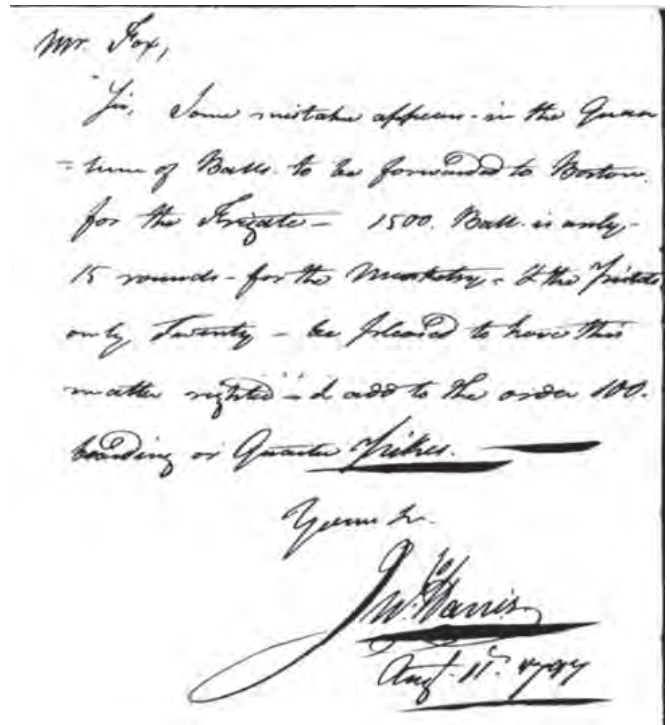 Mr. Fox,
Sir, Some mistake appears - in the Quan
- tum of Balls. to be forwarded to Boston.
for the Frigate - 1500. Ball. is only -
15 rounds - for the Musketry - & the Pistols
only Twenty - be pleased to have this
matter righted - & add to the order 100.
boarding or Quarter Pikes.
Yours &c.
Jno. Harris
Augt. 11th. 1797